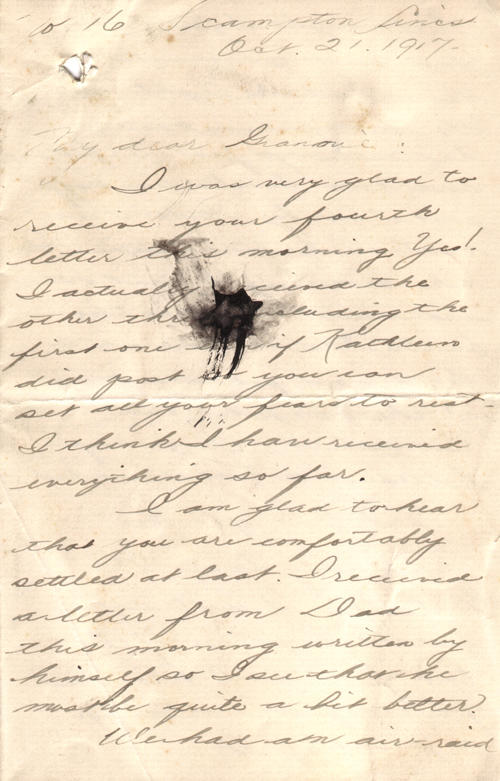 16 Scampton Lines
Oct. 21. 1917.
My dear
I was very glad to
receive your fourth
letter this morning Yes!
I actually received the
other three including the
first one if Kathleen
did post it you can
set all your fears to rest-
I think I have received
everything so far.
I am glad to hear
that you are comfortably
settled at last. I received
a letter from Dad
this morning written by
himself so I see that he
must be quite a bit better?
We had an air-raid